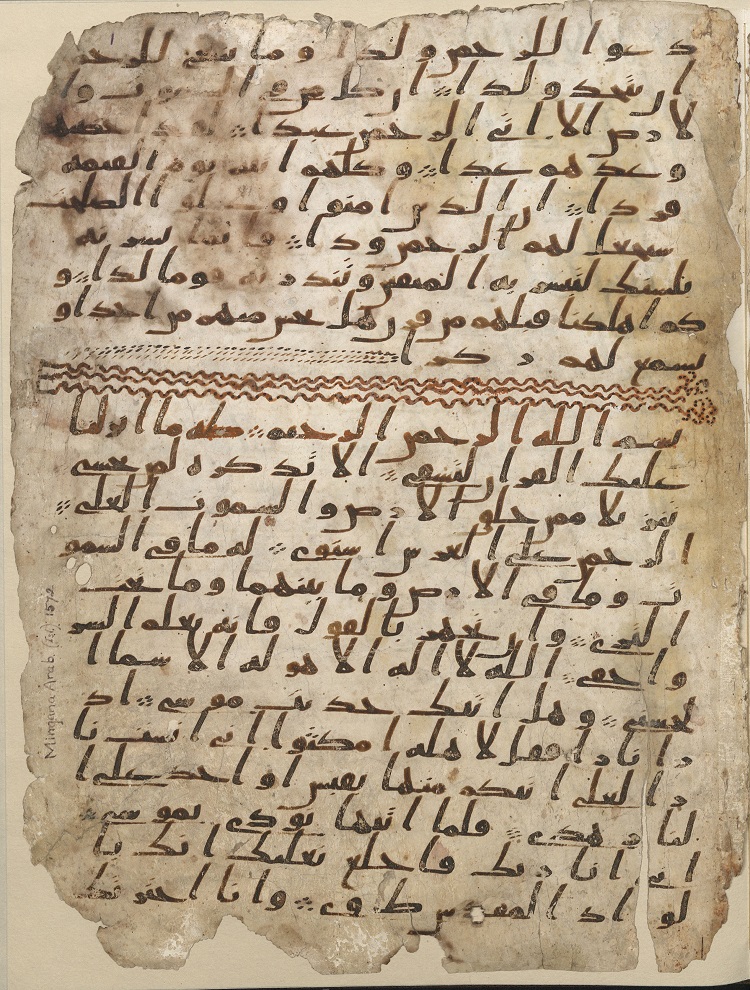 دعوا للرحمن ولدا وما ينبغي للرحمن
ان يتخذ ولدا ان كل من في السموت وا
لارض الا اتي الرحمن عبدا لقد احصيهم
وعدهم عدا وكلهم اتيه يوم القيمه
فردا ان الذين امنوا وعملوا الصلحت
سيجعل لهم الرحمن ودا فانما يسرنه
بلسنك لتبشر به المتقين وتنذر به قوما لدا و
كم اهلكنا قبلهم من قرن هل تحس منهم من احد او
تسمع لهم ركزا
بسم الله الرحمن الرحيم طه ما انزلنا
عليك القران لتشقي الا تذكره لمن يخشي
تنزيلا ممن خلق الارض والسموت العلي
الرحمن علي العرش استوي له ما في السمو
ت وما في الارض وما بينهما وما تحت
الثري وان تجهر بالقول فانه يعلم السر
واخفي الله لا اله الا هو له الاسما ا
لحسني وهل اتيك حديث موسي اذ
را نارا فقل لاهله امكثوا اني انست نا
را لعلي اتيكم منها بقبس او اجد علي ا
لنار هدي فلما اتيها نودي يموسي
اني انا ربك فاخلع نعليك انك با
لواد المقدس طوي وانا اخترتك
Mingana Arab. (Isl) 1572